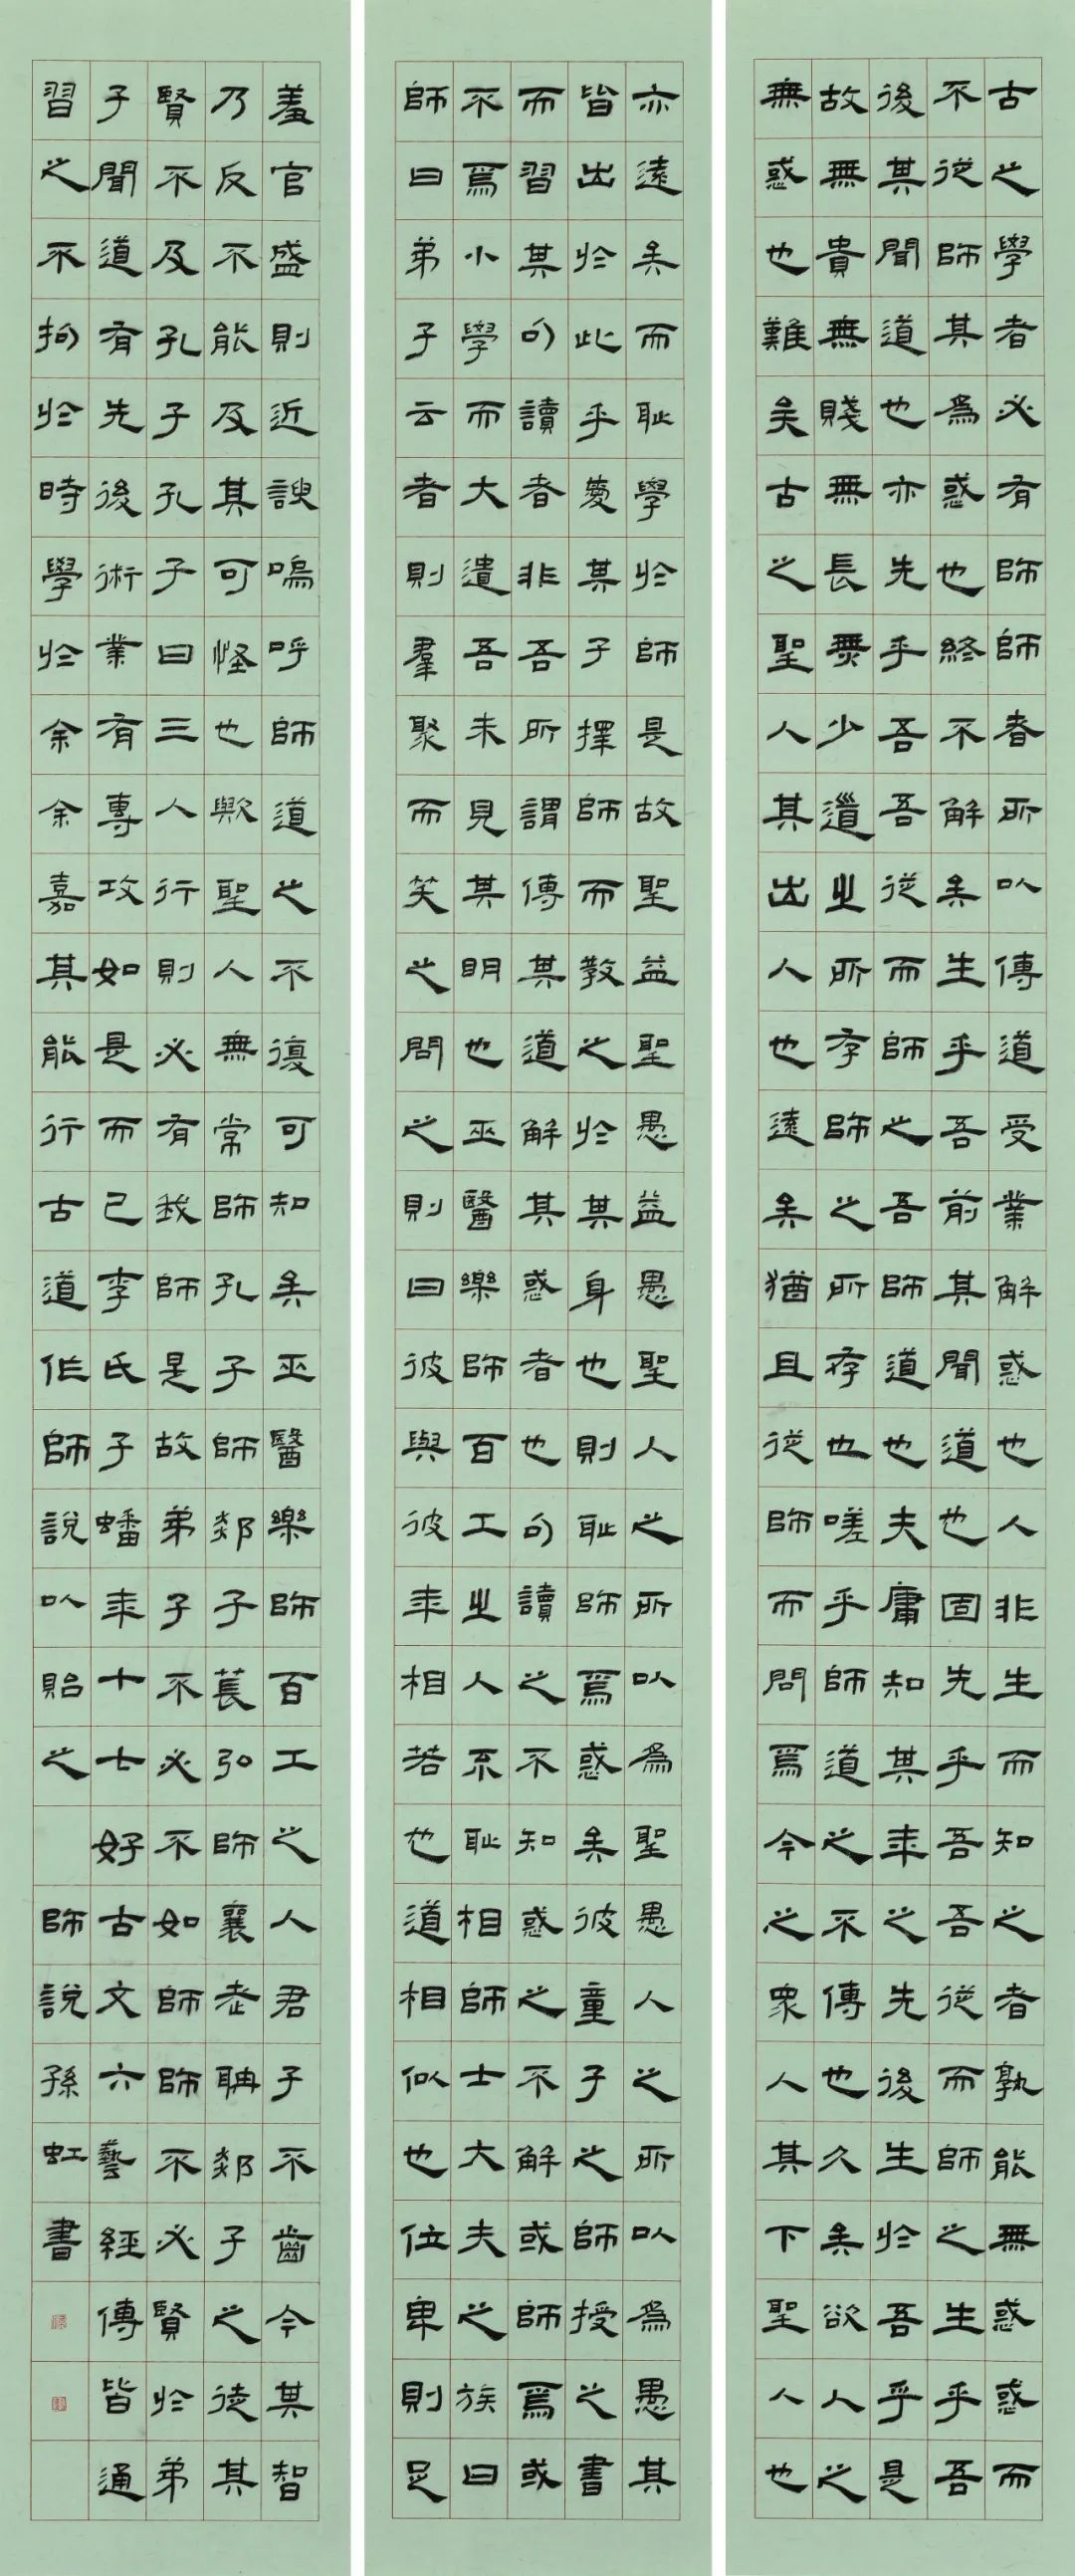 古之學者必有師師者所以傳道受業解惑也人非生而知之者孰能無惑惑而
不從師其為惑也終不解矣生乎吾前其聞道也固先乎吾吾從而師之生乎吾
後其聞道也亦先乎吾吾從而師之吾師道也夫庸知其年之先後生於吾乎是
故無貴無賤無長無少道之所存師之所存也嗟乎師道之不傳也久矣欲人之
無惑也難矣古之聖人其出人也遠矣猶且從師而問焉今之眾人其下聖人也
亦遠矣而耻學於師是故聖益聖愚益愚聖人之所以為聖愚人之所以為愚其
皆出於此乎愛其子擇師而教之於其身也則耻師焉惑矣彼童子之師授之書
而習其句讀者非吾所謂傳其道解其惑者也句讀之不知惑之不解或師焉或
不焉小學而大遺吾未見其明也巫醫樂師百工之人不耻相師士大夫之族曰
師曰弟子云者則羣聚而笑之問之則曰彼與彼年相若也道相似也位卑則足
羞官盛則近諛嗚呼師道之不復可知矣巫醫樂師百工之人君子不齒今其智
乃反不能及其可怪也歟聖人無常師孔子師郯子萇弘師襄老聃郯子之徒其
賢不及孔子孔子曰三人行則必有我師是故弟子不必不如師師不必賢於弟
子聞道有先後術業有專攻如是而已李氏子蟠年十七好古文六藝經傳皆通
習之不拘於時學於余余嘉其能行古道作師說以貽之 師說孫虹書